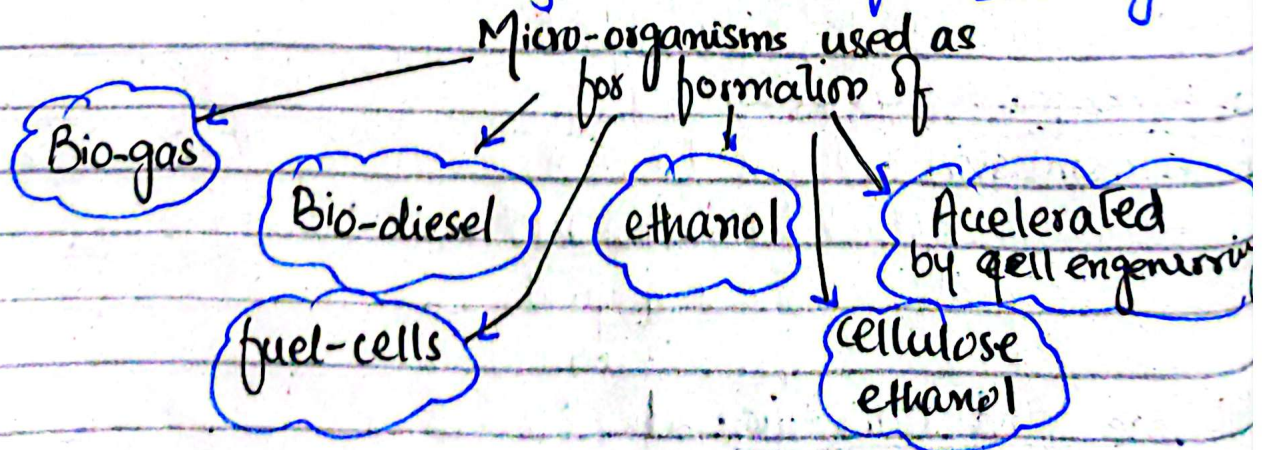 Micro-organisms used as
for formation of
Bio-gas
Bio-diesel
ethanol
Accelerated
by cell
fuel-cells
cellulose
ethanol